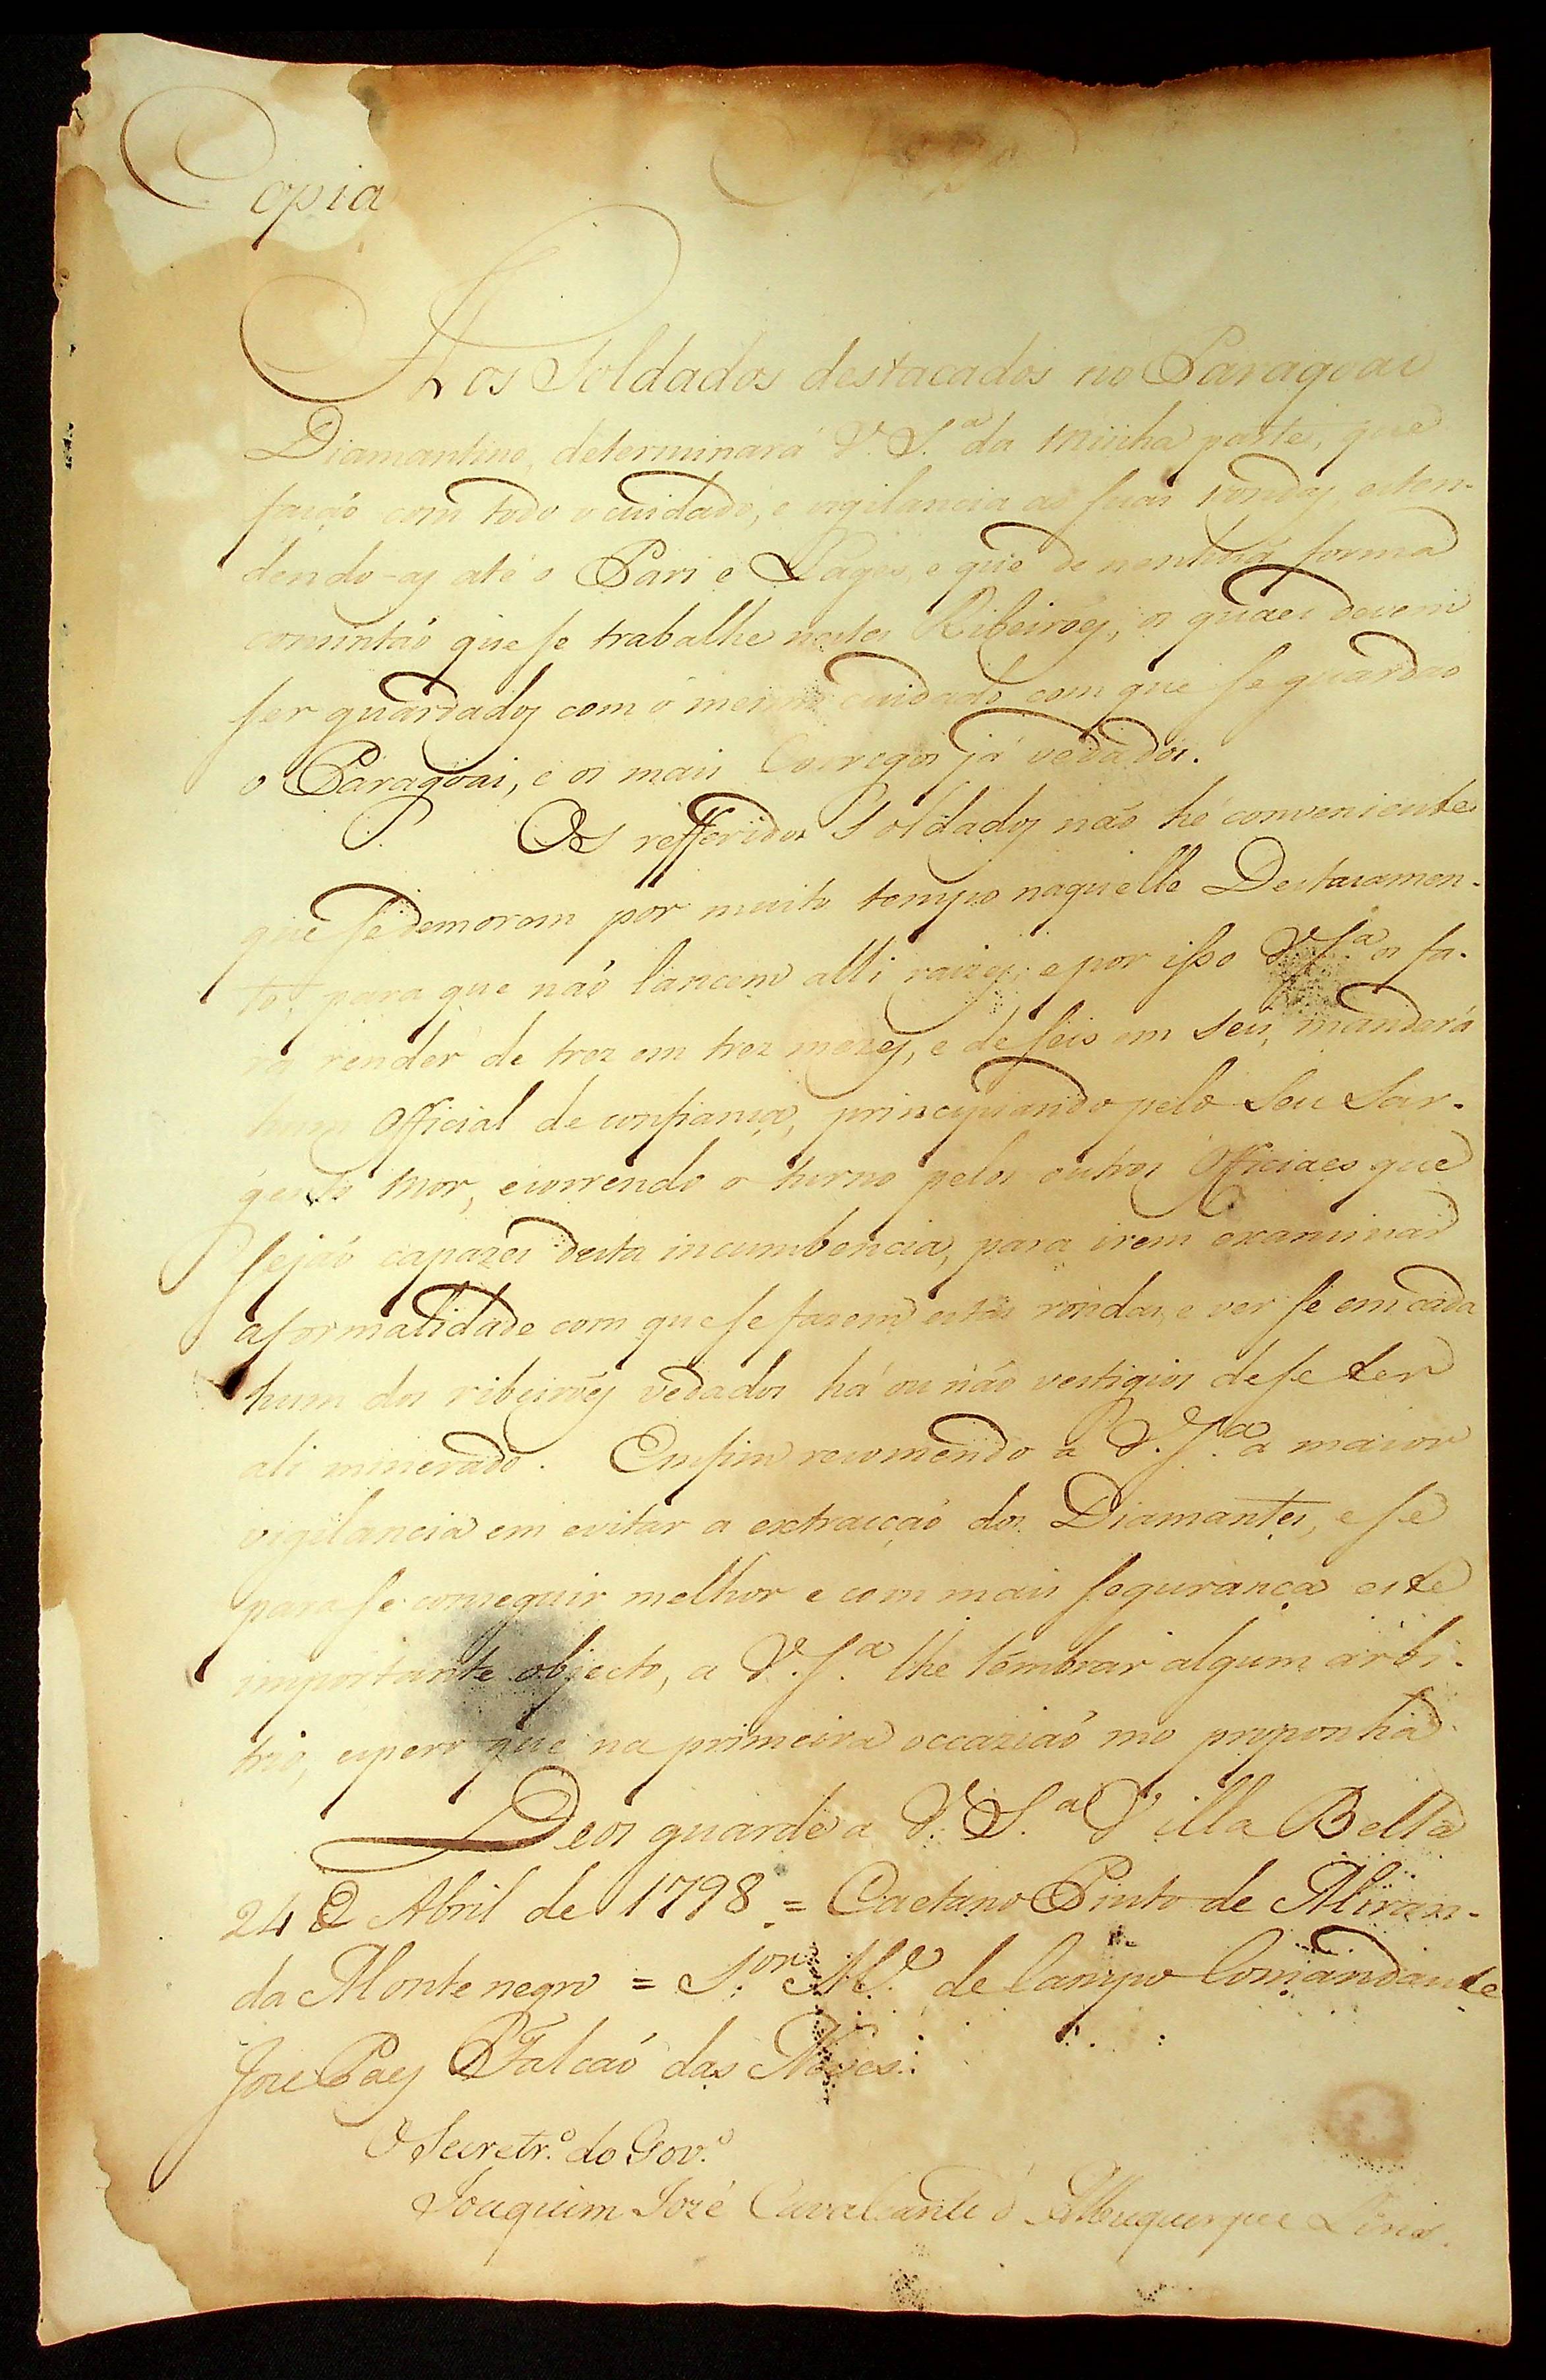 Copia
Aos Soldados destacados no Paragoai
Diamantino, determinará V. S.ª da minha parte, que
fação com todo o cuidado, e vigilancia as suas rondas, esten-
dendo-as até o Pari e Lages, e que de nenhuã forma
consintaó que se trabalhe nestes Ribeiroẽs, os quaes devem
ser guardados com o mesmo cuidado com que se guardaó
o Paragoai, e os mais Corregos já vedados.
Os refferidos Soldados naó hé conveniente
que se demorem por muito tempo naquelle Destacamen-
to, para que naó lancem alli raizes, e por isso V. S.ª os fa-
rá render de trez em trez mezes, e de seis em seis, mandará
hum Official de confiança, principiando pelo seu Sar-
gento Mor, e correndo o turno pelos outros Officiaes que
sejaó capazes desta incumbencia, para irem examinar
a formalidade com que se fazem estas rondas, e ver se em cada
hum dos ribeiroẽs vedados há ou naó vestigios de se ter
ali minerado. Emfim recomendo a V. S.ª a maior
vigilancia em evitar a extracçaó dos Diamantes, e se
para se conseguir melhor e com mais segurança este
importante objecto, a V. S.ª lhe lembrar algum arbi-
trio, espero que na primeira occaziaó mo proponha.
Deos guarde a V. S.ª Villa Bella
24 de Abril de 1798 = Caetano Pinto de Miran-
da Montenegro = S.or M.e de Campo Comandante
José Paes Falcaó das Neves.
O Secretr.º do Gov.º
Joaquim José Cavalcanti d'Albuquerque Lins.